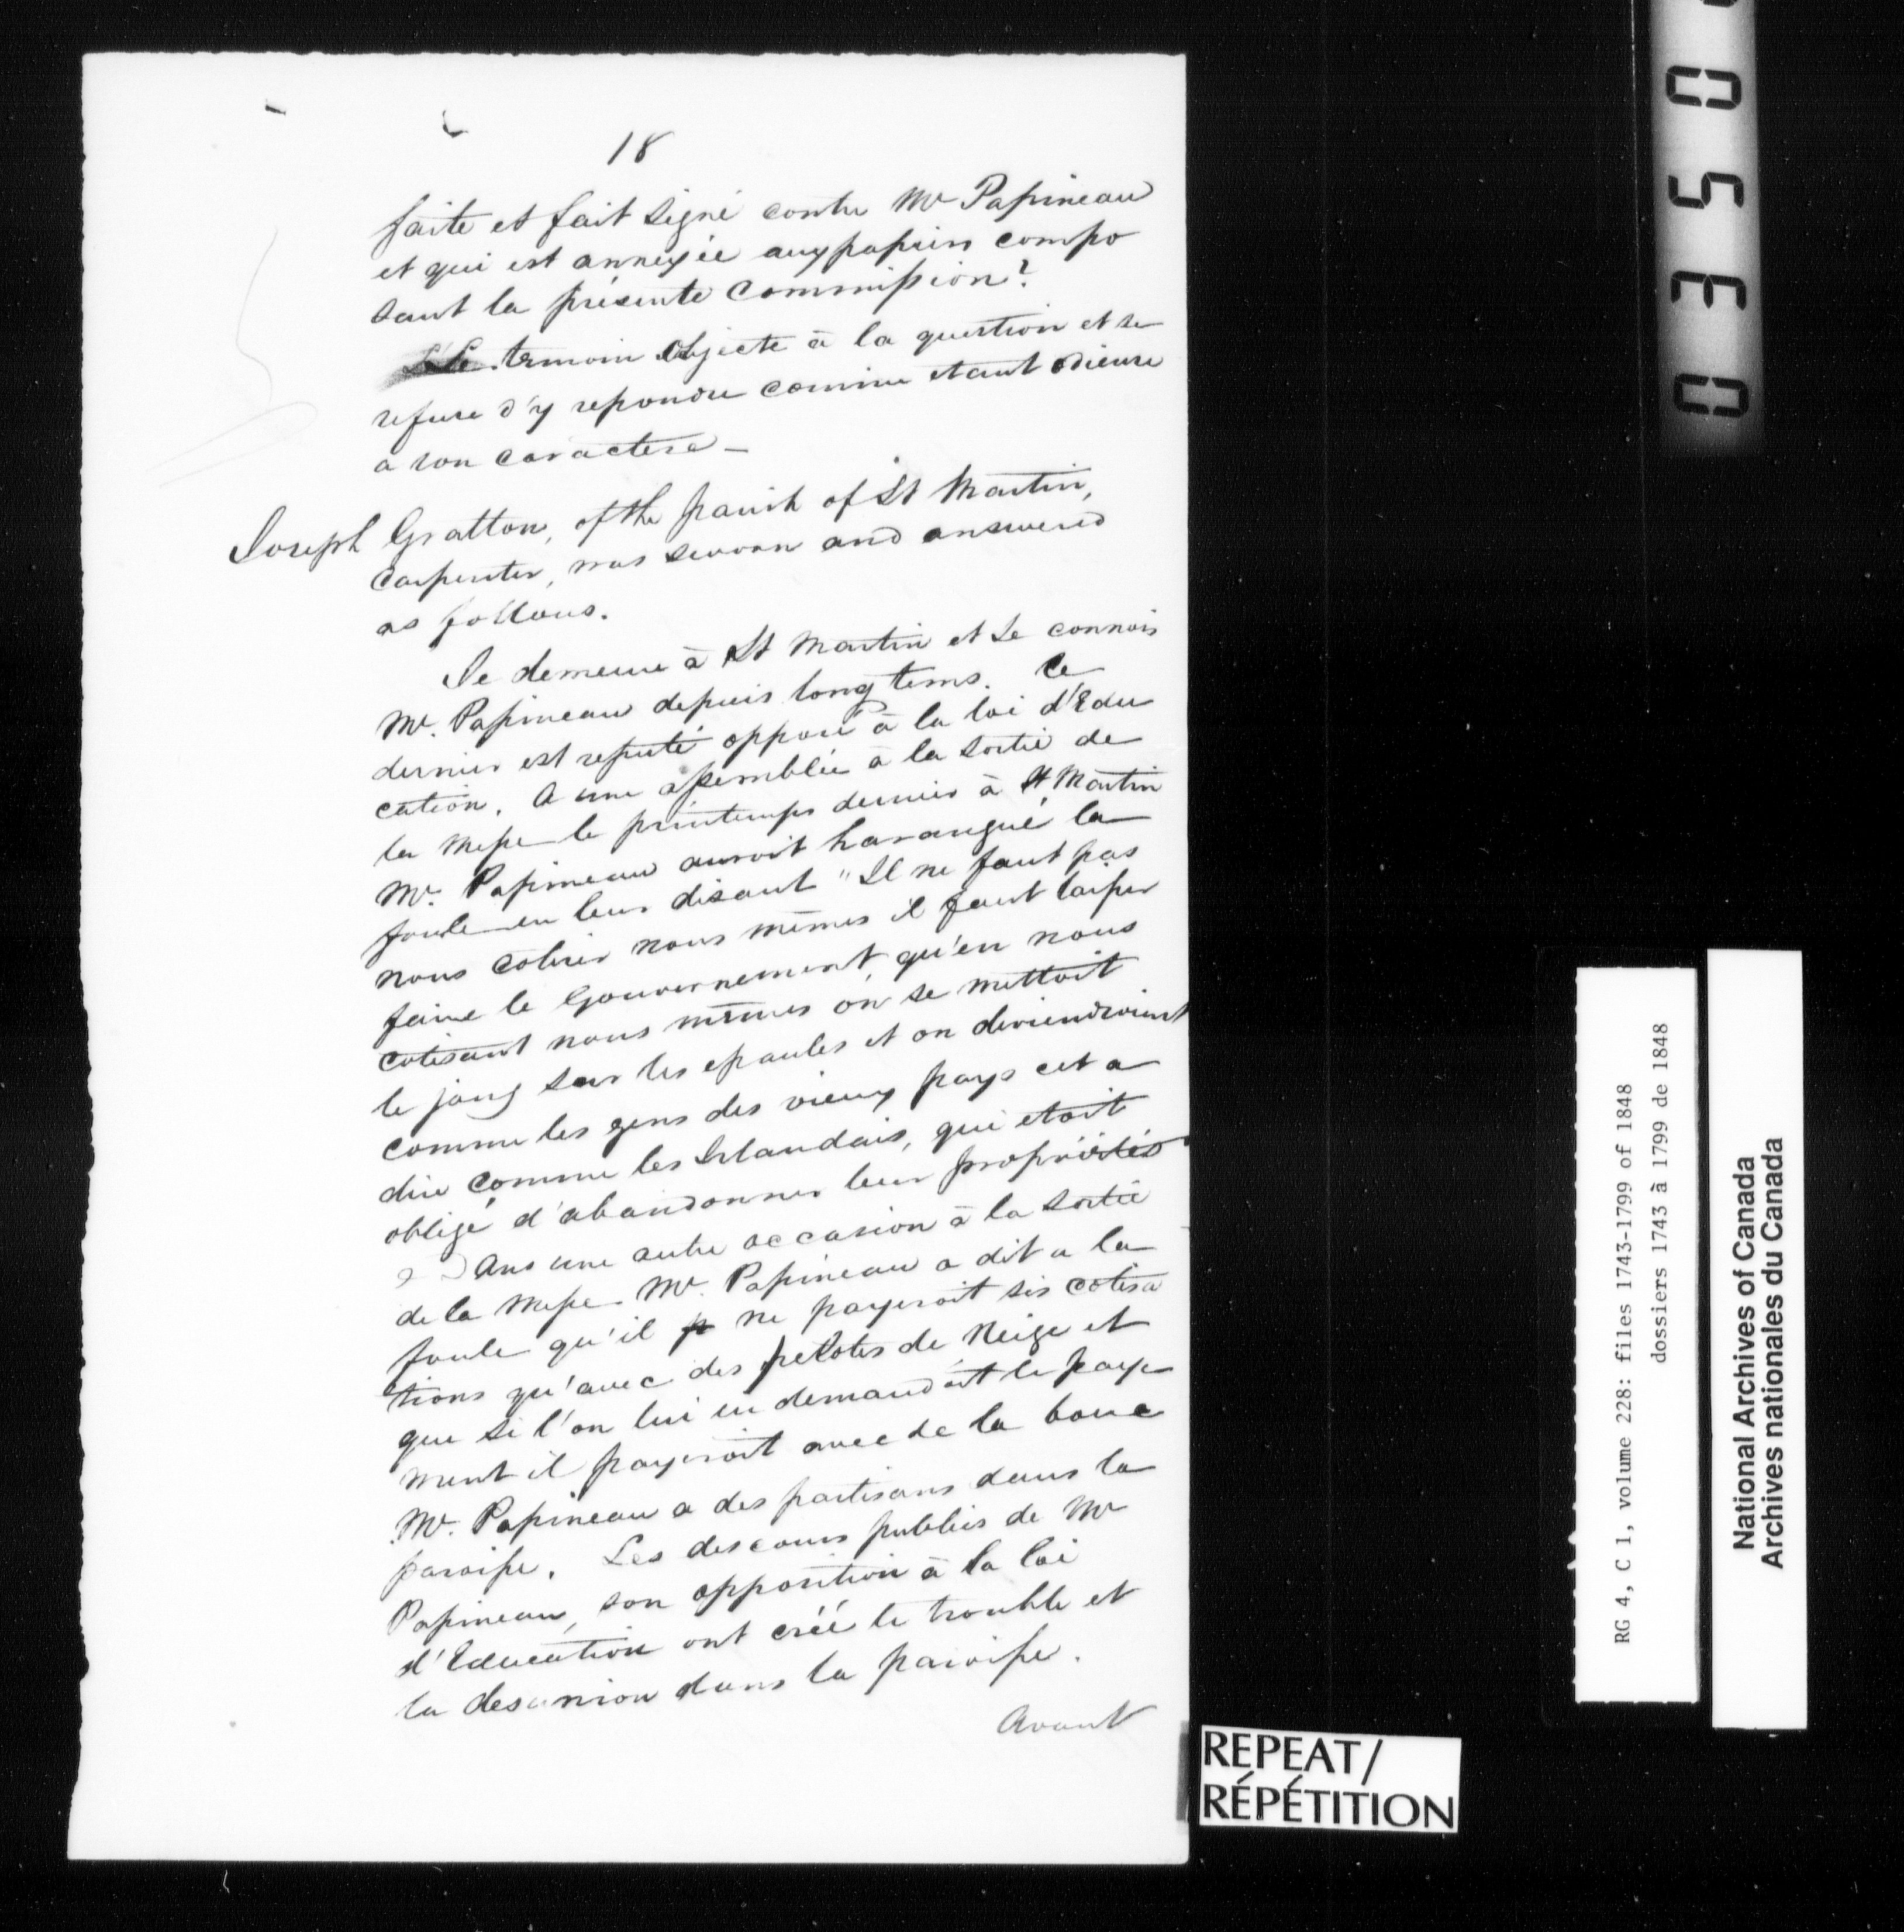 18
faite et fait signé contre Mr Papineau
et qui est annexée aux papiers compo
sant la présente Commission?
Le temoin objecte à la question et se
refuse d'y repondre comme etant odieuse
a son caractere –
Joseph Gratton, of the parish of St Martin,
carpenter, was sworn and answered
as follows.
Je demeure à St Martin et Je connois
Mr. Papineau depuis long tems. Ce
dernier est reputé opposé à la loi d'Edu
cation. A une assemblée à la sortie de
la Messe le printemps dernier à St Martin
Mr. Papineau auroit harangué la
foule en leur disant "Il ne faut pas
nous cotiser nous mêmes il faut laisser
faire le Gouvernement, qu'en nous
cotisant nous mêmes on se mettoit
le joug sur les epaules et on deviendroient
comme les gens des vieux pays cet a
dire comme les Irlandais, qui etoit
obligé d'abandonner leur propriétés
Dans une autre occasion à la sortie
de la Messe Mr. Papineau a dit a la
foule qu'il ne payeroit ses cotisa
tions qu'avec des pelotes de Neige et
que si l'on lui en demandoit le paye
ment il payeroit avec de la boue
Mr. Papineau a des partisans dans la
paroisse. Les descours publics de Mr
Papineau, son opposition à la loi
d'Education ont créé le trouble et
la desunion dans la paroisse.
Avant
0350
RG 4, C 1, volume 228: files 1743-1799 of 1848
dossiers 1743 à 1799 de 1848
National Archives of Canada
Archives nationales du Canada
REPEAT/
RÉPÉTITION